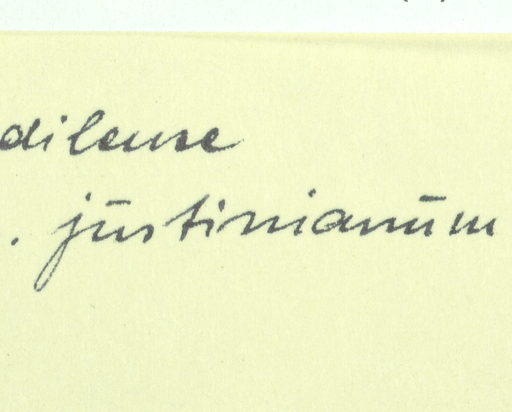 dilense
. jūstinianūm